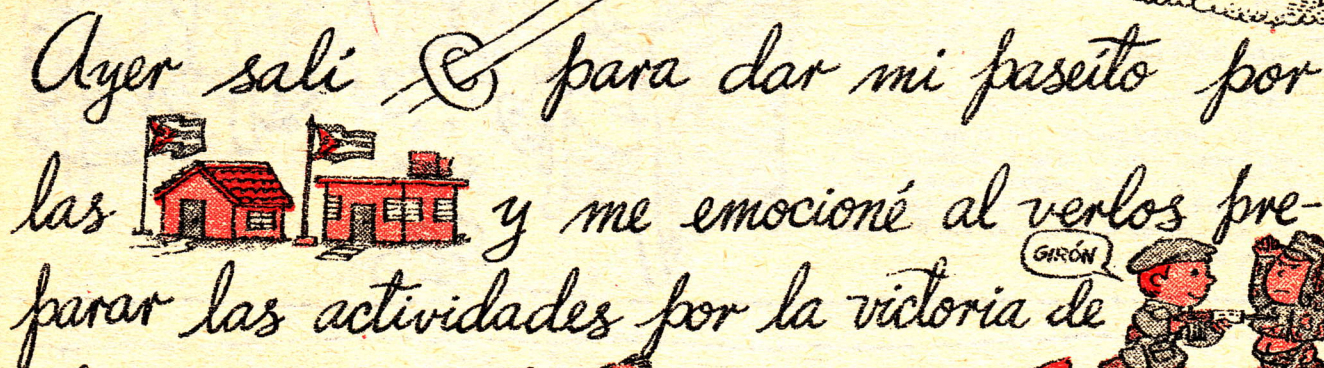 Ayer salí para dar mi paseíto por
las y me emocioné al verlos pre-
parar las actividades por la victoria de
GIRÓN